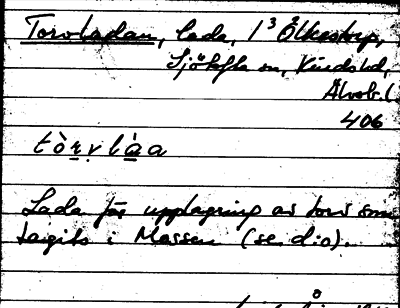 Torvladan, lada, 1³ Ölkestorp,
Sjötofta sn, Kinds hd,
Älvsb. l.
406
tòr̤vlàa
Lada för upplagring av torv som
tagits i Mossen (se d:o).